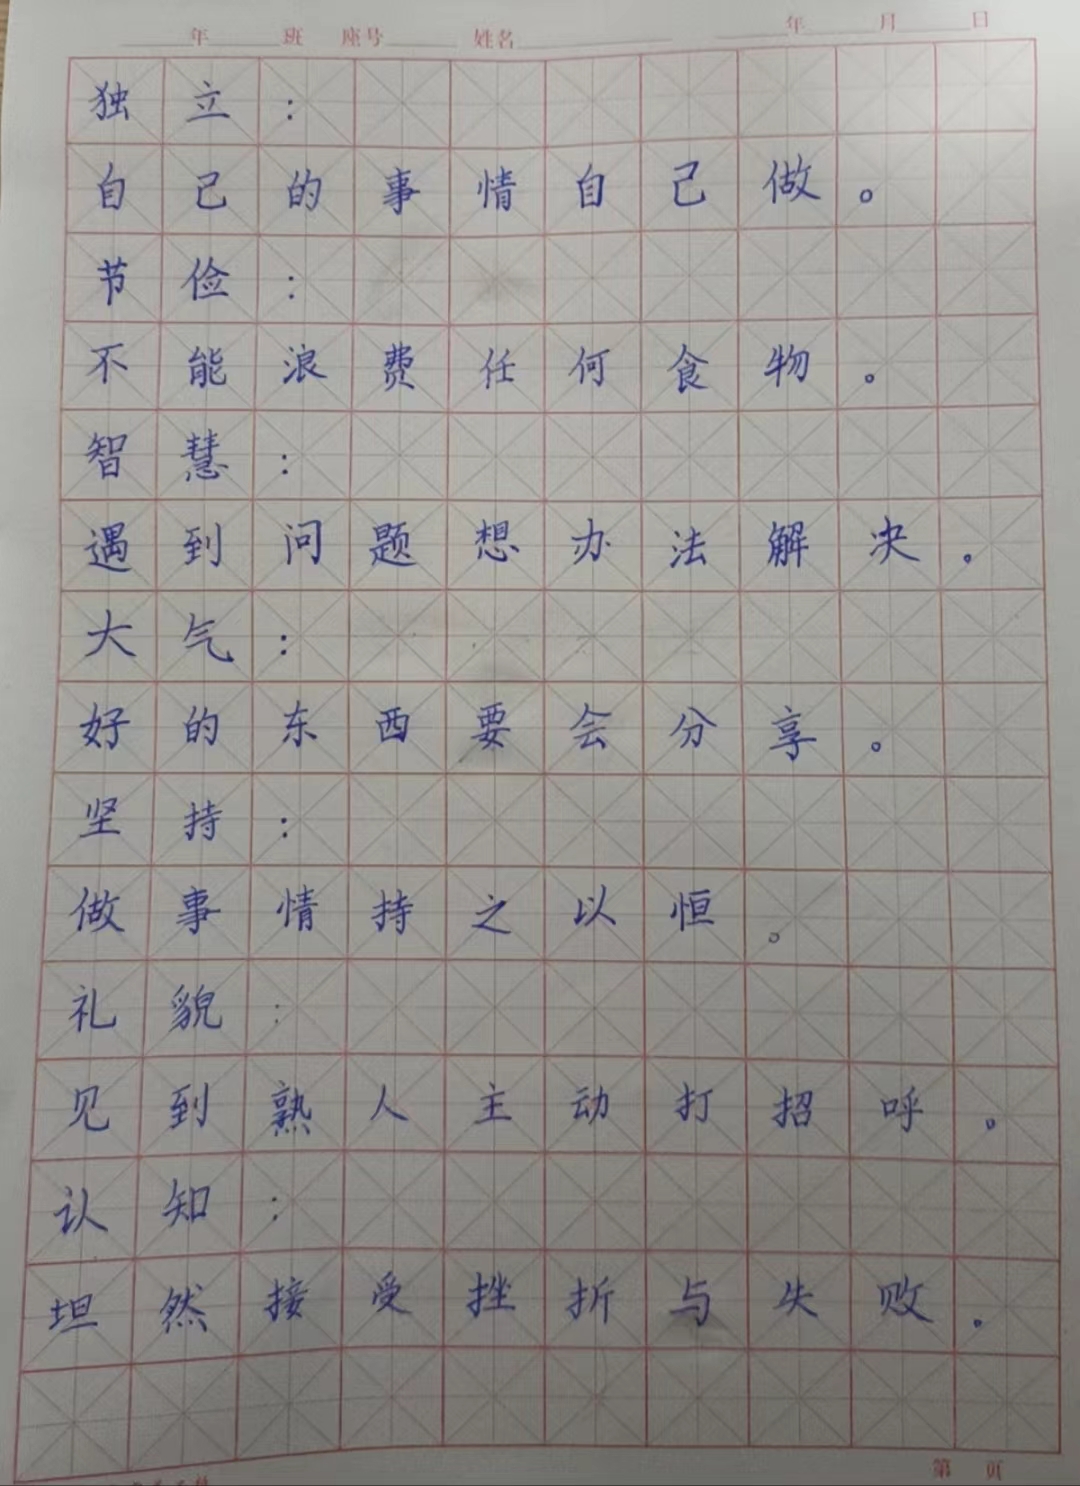 年 班 座号 姓名 年 月 日
独立：
自己的事情自己做。
节俭：
不能浪费任何食物。
智慧：
遇到问题想办法解决。
大气：
好的东西要会分享。
坚持：
做事情持之以恒。
礼貌：
见到熟人主动打招呼。
认知：
坦然接受挫折与失败。
第 页